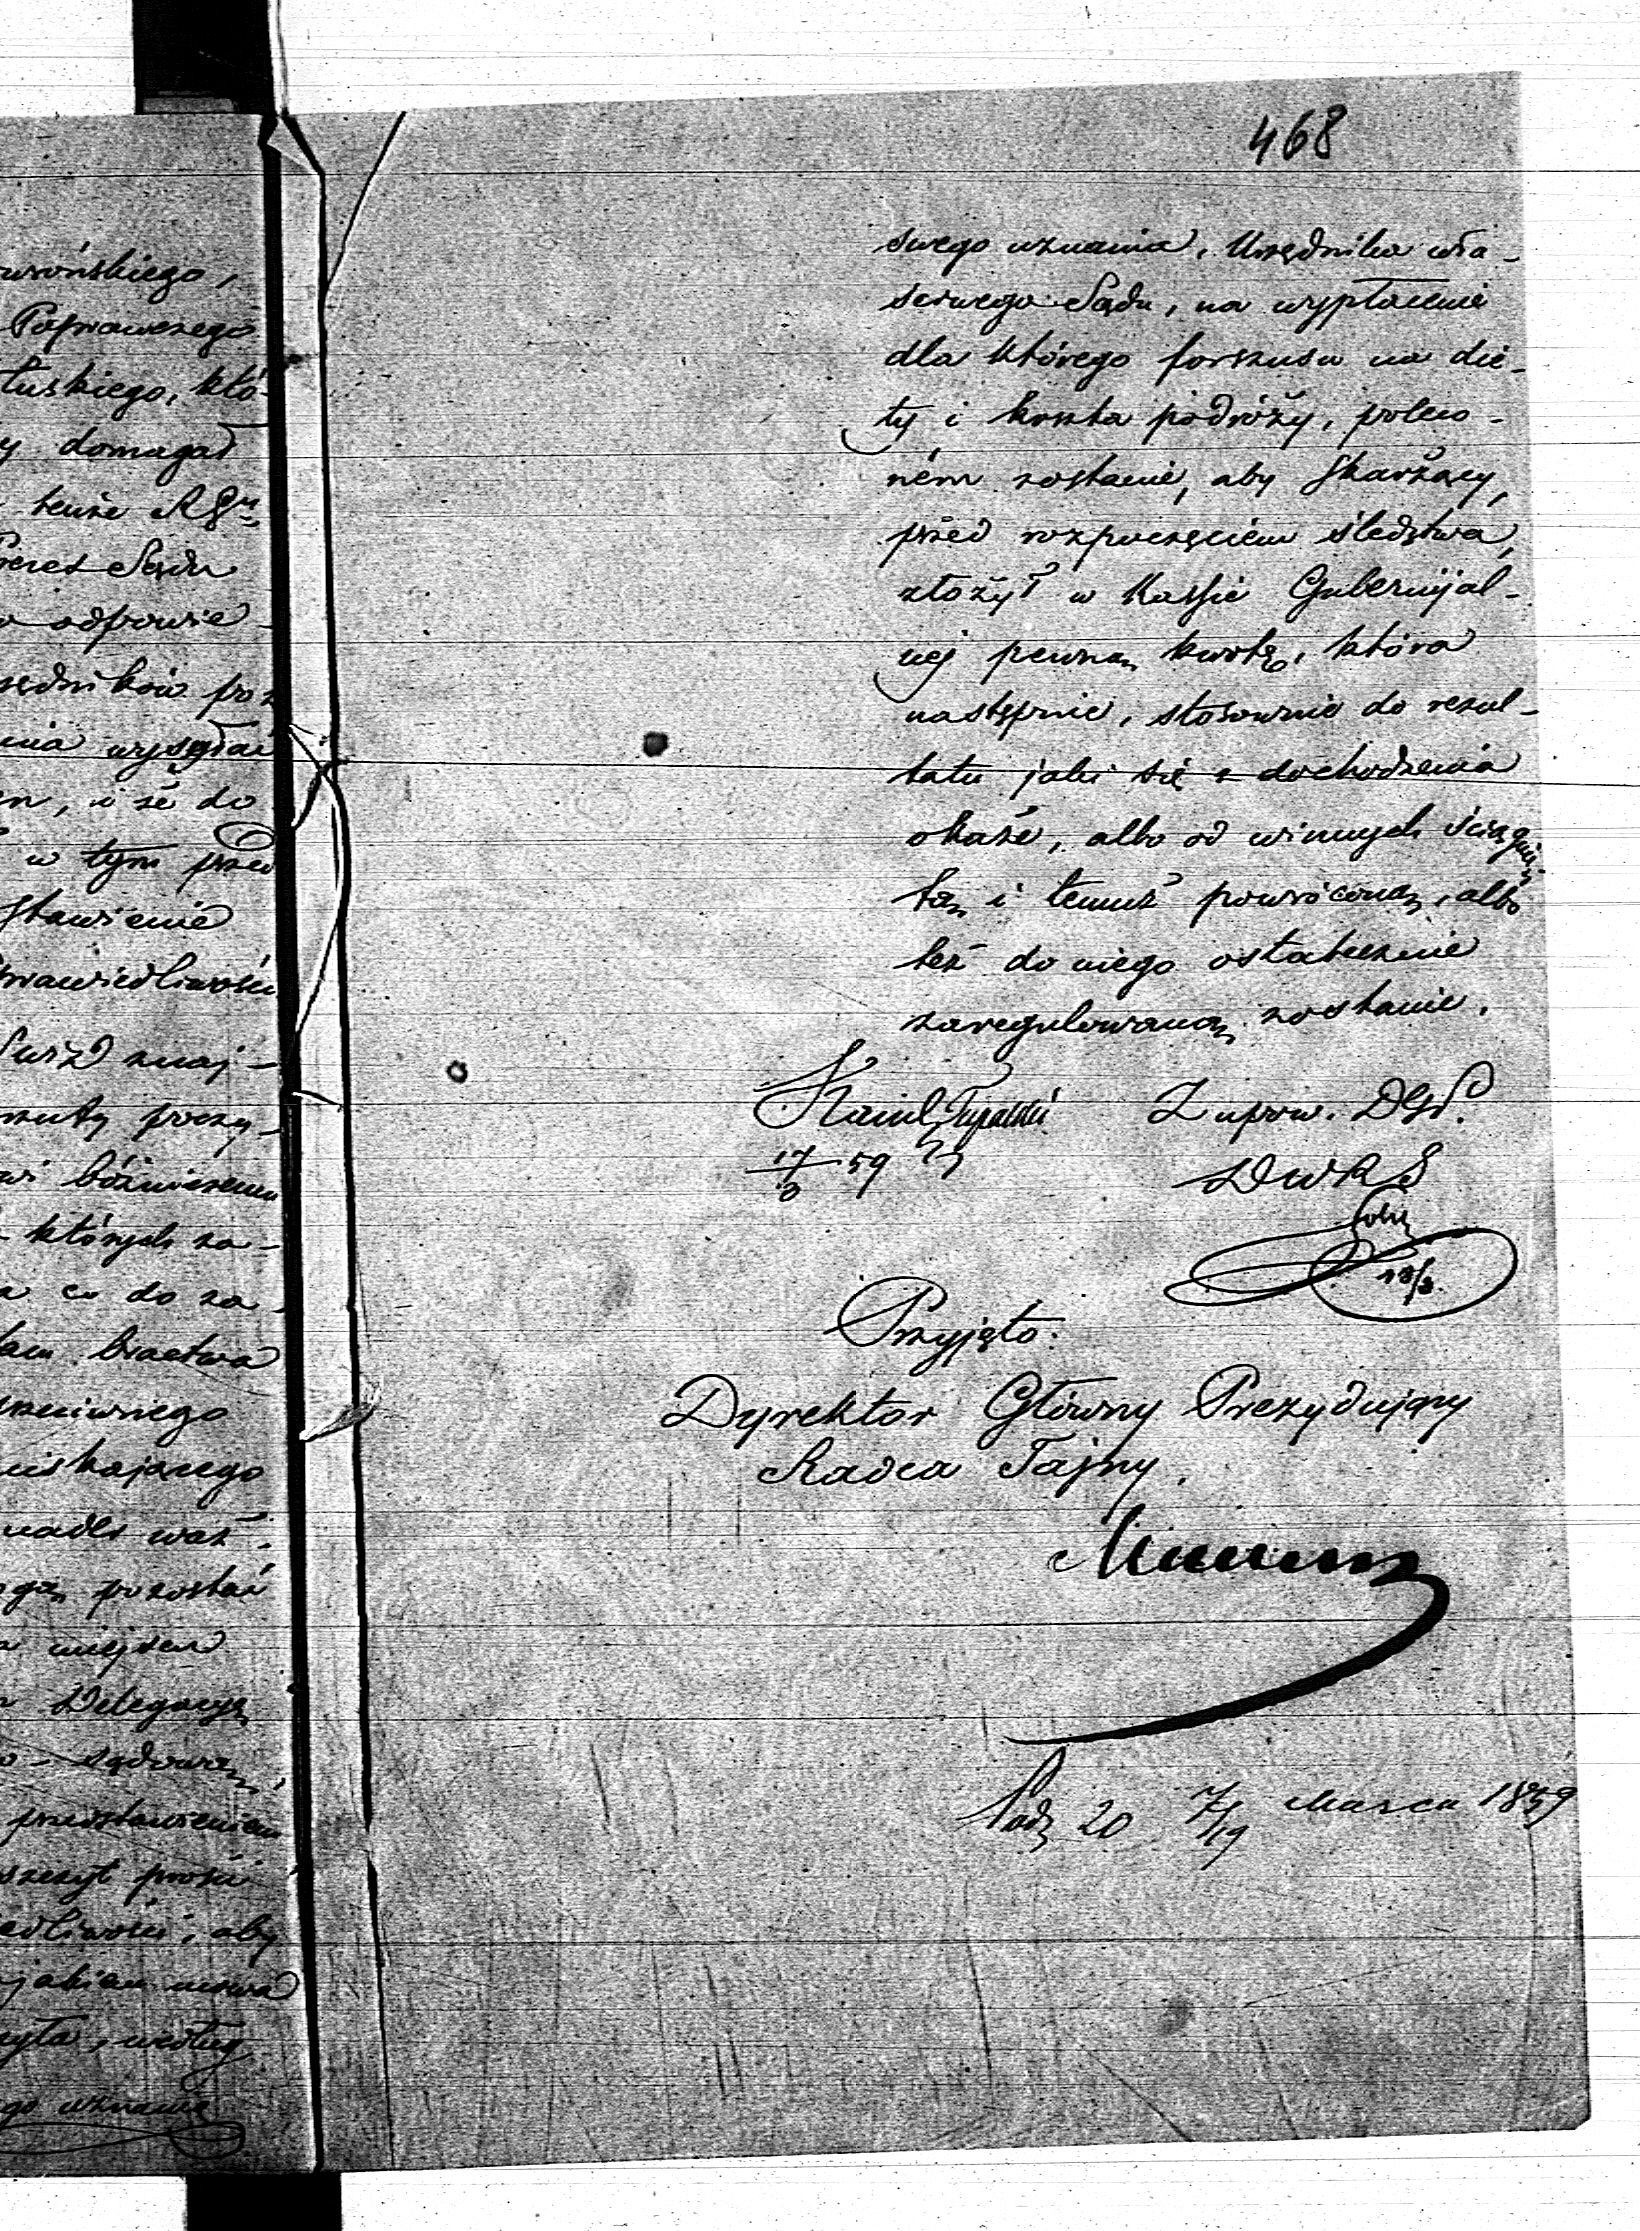 wrońskiego,
Poprawczego
tuskiego, któ-
y domagał
tenże RGu.
Prezes Sądu
o odpowie-
zędników po z
nia wysyłać
m, i że do
w tym przed
stawienie
Sprawiedliwości
znaj-
poczy-
wi bóżniczemu
których za-
a co do za-
tam bractwa
uiskającego
nadto waż-
gą pozostać
miejscu
Delegacyą
o-sądową,
przedstawieniem
szczyt prosić
edliwości, aby
jakiem
yła, według
go uznania
468
swego uznania, Urzędnika wła-
sciwego Sądu, na wypłacenie
dla którego forszusu na die-
ty i koszta podróży, poleco-
ném zostanie, aby skarżący,
przed rozpoczęciem śledztwa,
złożył w Kassie Gubernijal-
nej pewną kwotę, która
następnie, stosownie do rezul-
tatu jaki się z dochodzenia
okaże, albo od winnych ściągnię-
tą i temuż powróconą, albo
też do niego ostatecznie
zaregulowaną zostanie.
Kamil
Z upow. DGP.
17/3 59
DWRS
18/3.
Przyjęto:
Dyrektor Główny Prezydujący
Radca Tajny,
20 7/19 Marca 1859